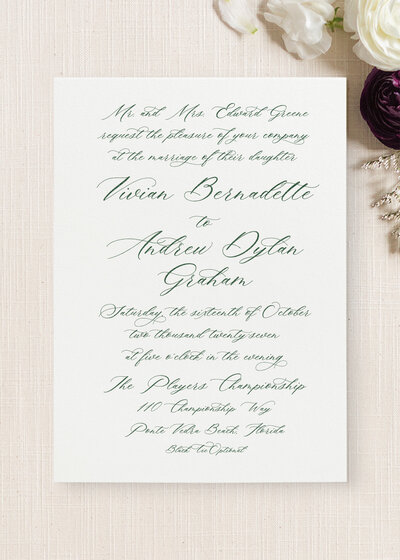 Mr. and Mrs. Edward Greene
request the pleasure of your company
at the marriage of their daughter
Vivian Bernadette
to
Andrew Dylan
Graham
Saturday, the sixteenth of October
two thousand twenty seven
at five o'clock in the evening
The Players Championship
110 Championship Way
Ponte Vedra Beach, Florida
Black Tie Optional